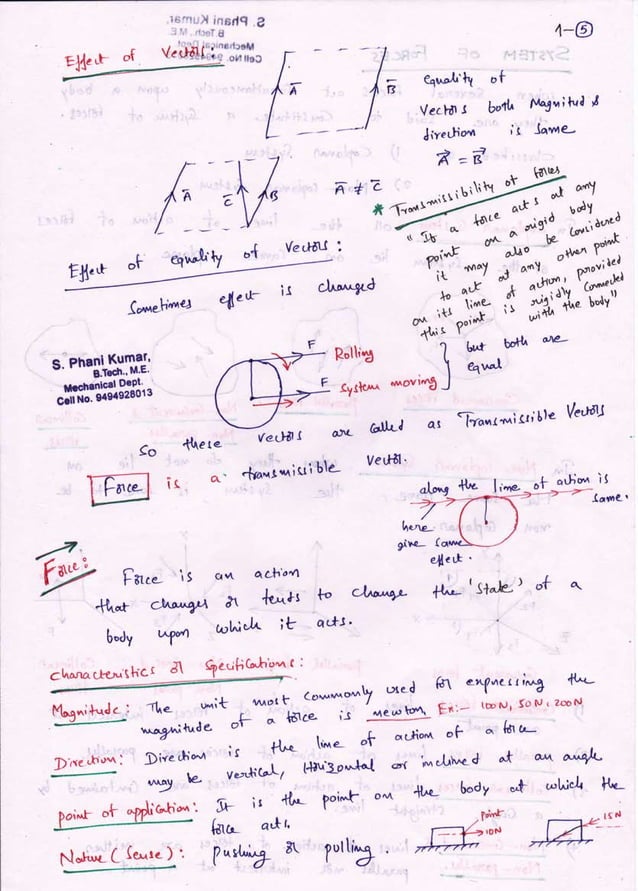 1-⑤
Effect of Vectors:
A̅ B̅
Equality of
Vectors both Magnitude &
direction is same
A⃗ = B⃗
A̅ C̅ B̅ A̅ ≠ C̅
* Transmissibility of forces
"If a force acts at any
point on a rigid body
it may also be considered
to act at any other point
on its line of action, provided
this point is rigidly connected
with the body"
Effect of equality of Vectors:
Sometimes effect is changed
S. Phani Kumar,
B.Tech., M.E.
Mechanical Dept.
Cell No. 9494928013
F Rolling
F System moving
but both are
equal
So these vectors are called as Transmissible Vectors
Force is a transmissible vector.
along the line of action is
same.
here
give same
effect.
Force:
Force is an action
that changes or tends to change the 'state' of a
body upon which it acts.
Characteristics or Specifications:
Magnitude: The unit most commonly used for expressing the
magnitude of a force is newton, Ex:- 100N, 50N, 200N
Direction: Direction is the line of action of a force
may be vertical, Horizontal or inclined at an angle
point of application: It is the point on the body at which the
force acts.
point
10N
15N
Nature (Sense): pushing or pulling